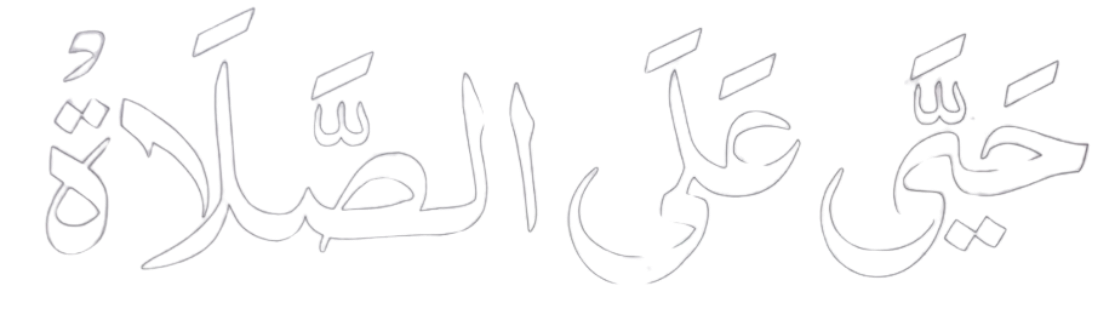 حَيَّ عَلَى الصَّلَاةُ